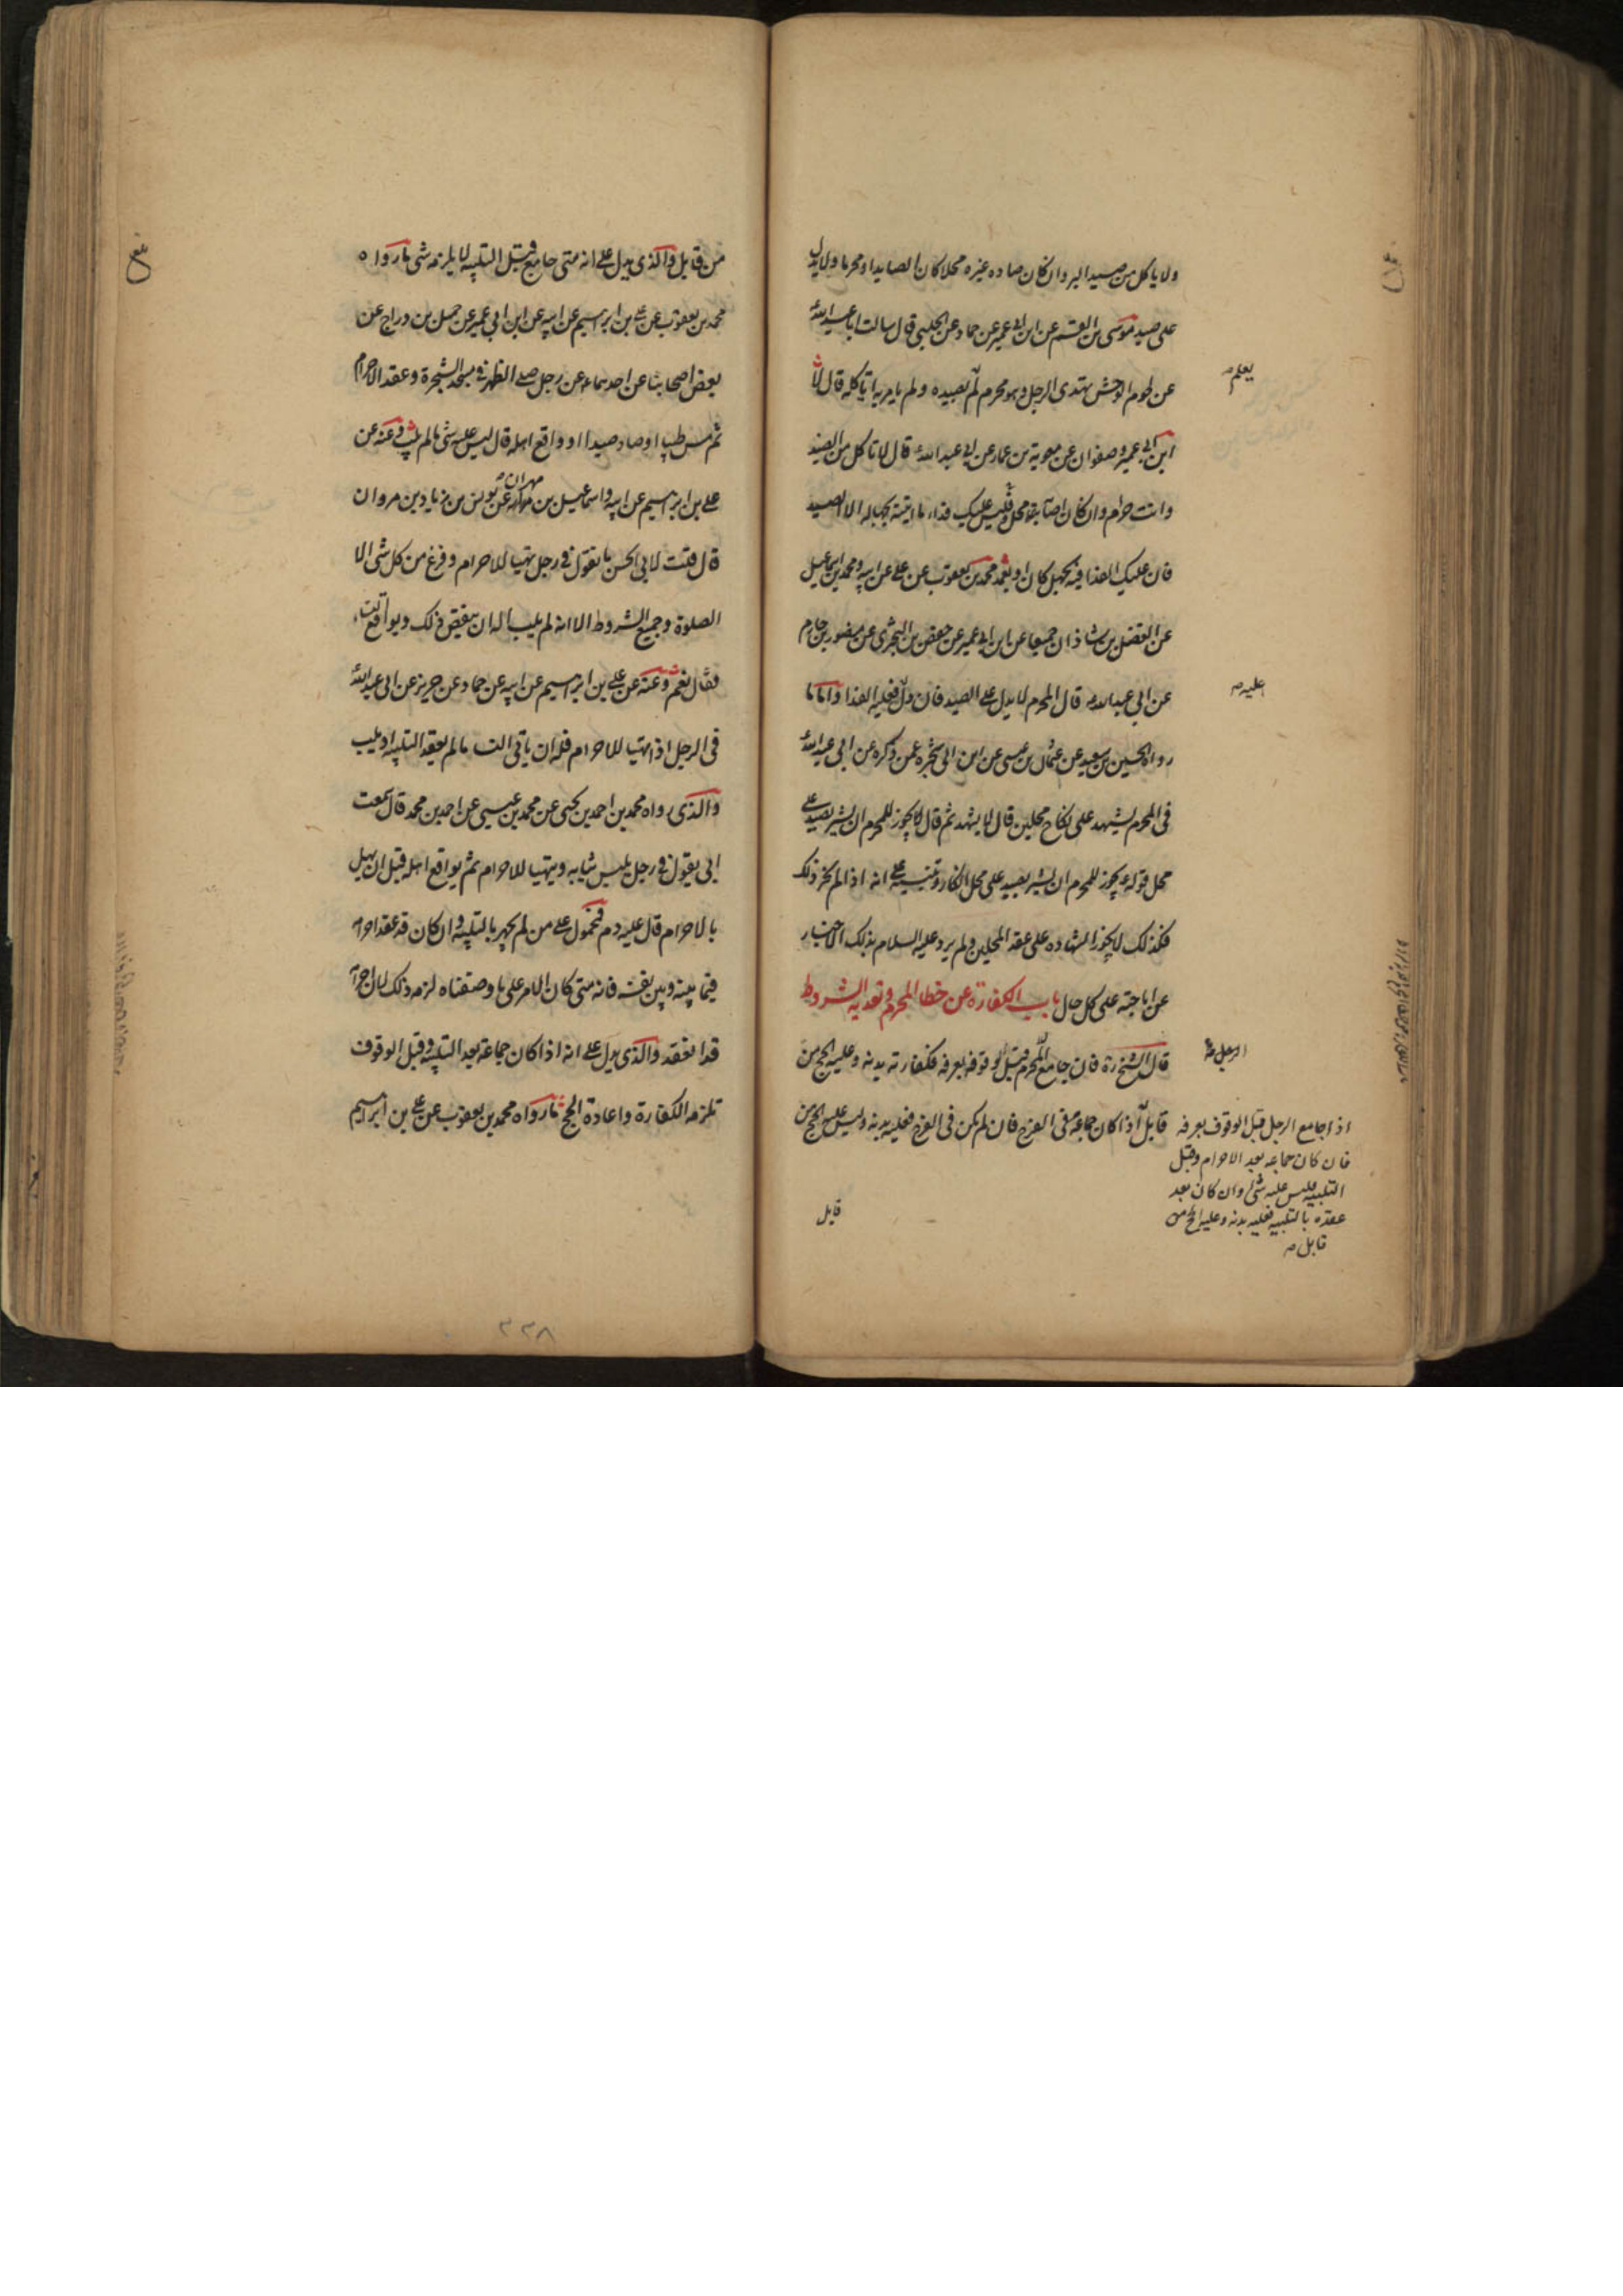 ولا ياكل من صيد البر وان كان صاده غيره محلا كان الصايد او محرما ولا يدل
على صيد موسى بن القسم عن ابن ابى عمير عن حماد عن الحلبى قال سالت ابا عبد الله
عن لحوم الوحش تهدى الرجل وهو محرم لم بصيده ولم يامر به اياكله قال لا
يعلم
ابن ابى عمير وصفوان عن معوية بن عمار عن ابى عبد الله قال لا تاكل من الصيد
وانت حرام وان كان اصابه محل وليس عليك فداء ما اتيته بجهاله الا الصيد
فان عليك الفدا فيه بجهل كان او بعمد محمد بن يعقوب عن على عن ابيه ومحمد بن اسماعيل
عن الفضل بن شاذان جميعا عن ابن ابى عمير عن حفص بن البخترى عن منصور بن حازم
عن ابى عبد الله قال المحرم لا يدل على الصيد فان دل فعليه الفدا واما ما
عليه
رواه الحسين بن سعيد عن عثمان بن عيسى عن ابن ابى شجره عمن ذكره عن ابى عبد الله
فى المحرم يشهد على نكاح محلين قال لا يشهد ثم قال يجوز للمحرم ان يشير بصيد على
محل قوله يجوز للمحرم ان يشير بصيد على محل انكار وتنبيه على انه اذا لم يجز ذلك
فكذلك لا يجوز الشهاده على عقد المحلين ولم يرد عليه السلام بذلك الاخبار
عن اباحته على كل حال باب الكفارة عن خطا المحرم وتعديه الشروط
قال الشيخ ره فان جامع المحرم قبل وقوفه بعرفه فكفارته بدنه وعليه الحج من
الرجل
قابل اذا كان جماعه فى الفرج فان لم يكن فى الفرج فعليه بدنه وليس عليه الحج من
اذا جامع الرجل قبل الوقوف بعرفه
فان كان جماعه بعد الاحرام وقبل
التلبيه فليس عليه شى وان كان بعد
عقده بالتلبيه فعليه بدنه وعليه الحج من
قابل
قابل
من قابل والذى يدل على انه متى جامع قبل التلبيه لا يلزمه شى ما رواه
محمد بن يعقوب عن على بن ابراهيم عن ابيه عن ابن ابى عمير عن جميل بن دراج عن
بعض اصحابنا عن احدهما عن رجل صلى الظهر فى مسجد الشجرة وعقد الاحرام
ثم مس طيبا او صاد صيدا او واقع اهله قال ليس عليه شى ما لم يلب وعنه عن
على بن ابراهيم عن ابيه واسماعيل بن مهران عن يونس عن زياد بن مروان
قال قلت لابى الحسن ما تقول فى رجل تهيا للاحرام وفرغ من كل شى الا
الصلوة وجميع الشروط الا انه لم يلب اله ان ينقض ذلك ويواقع النساء
فقال نعم وعنه عن على بن ابراهيم عن ابيه عن حماد عن حريز عن ابى عبد الله
فى الرجل اذا تهيا للاحرام فله ان ياتى النسا ما لم يعقد التلبيه او يلب
والذى رواه محمد بن احمد بن يحيى عن محمد بن عيسى عن احمد بن محمد قال سمعت
ابى يقول فى رجل يلبس ثيابه ويتهيا للاحرام ثم يواقع اهله قبل ان يهل
بالاحرام قال عليه دم فمحمول على من لم يجهر بالتلبيه وان كان قد عقد احرامه
فيما بينه وبين نفسه فانه متى كان الامر على ما وصفناه لزمه ذلك لان احرامه
قد انعقد والذى يدل على انه اذا كان جماعه بعد التلبيه وقبل الوقوف
تلزمه الكفارة واعادة الحج ما رواه محمد بن يعقوب عن على بن ابراهيم
٢٣٨